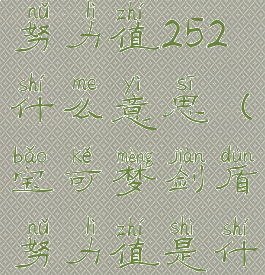 nǔ lì zhí
努力值252
shí me yì sī
什么意思（
bǎo kě mèng jiàn dùn
宝可梦剑盾
nǔ lì zhí shì shí
努力值是什